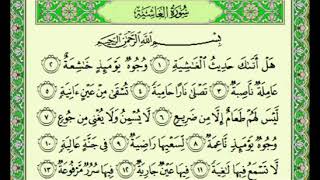 سُورَةُ الْغَاشِيَةِ
بِسْمِ اللَّهِ الرَّحْمَٰنِ الرَّحِيمِ
هَلْ أَتَىٰكَ حَدِيثُ الْغَٰشِيَةِ ١ وُجُوهٌ يَوْمَئِذٍ خَٰشِعَةٌ ٢
عَامِلَةٌ نَاصِبَةٌ ٣ تَصْلَىٰ نَارًا حَامِيَةً ٤ تُسْقَىٰ مِنْ عَيْنٍ ءَانِيَةٍ ٥
لَيْسَ لَهُمْ طَعَامٌ إِلَّا مِنْ ضَرِيعٍ ٦ لَا يُسْمِنُ وَلَا يُغْنِي مِنْ جُوعٍ ٧
وُجُوهٌ يَوْمَئِذٍ نَاعِمَةٌ ٨ لِسَعْيِهَا رَاضِيَةٌ ٩ فِي جَنَّةٍ عَالِيَةٍ ١٠
لَا تَسْمَعُ فِيهَا لَٰغِيَةً ١١ فِيهَا عَيْنٌ جَارِيَةٌ ١٢ فِيهَا سُرُرٌ مَرْفُوعَةٌ ١٣